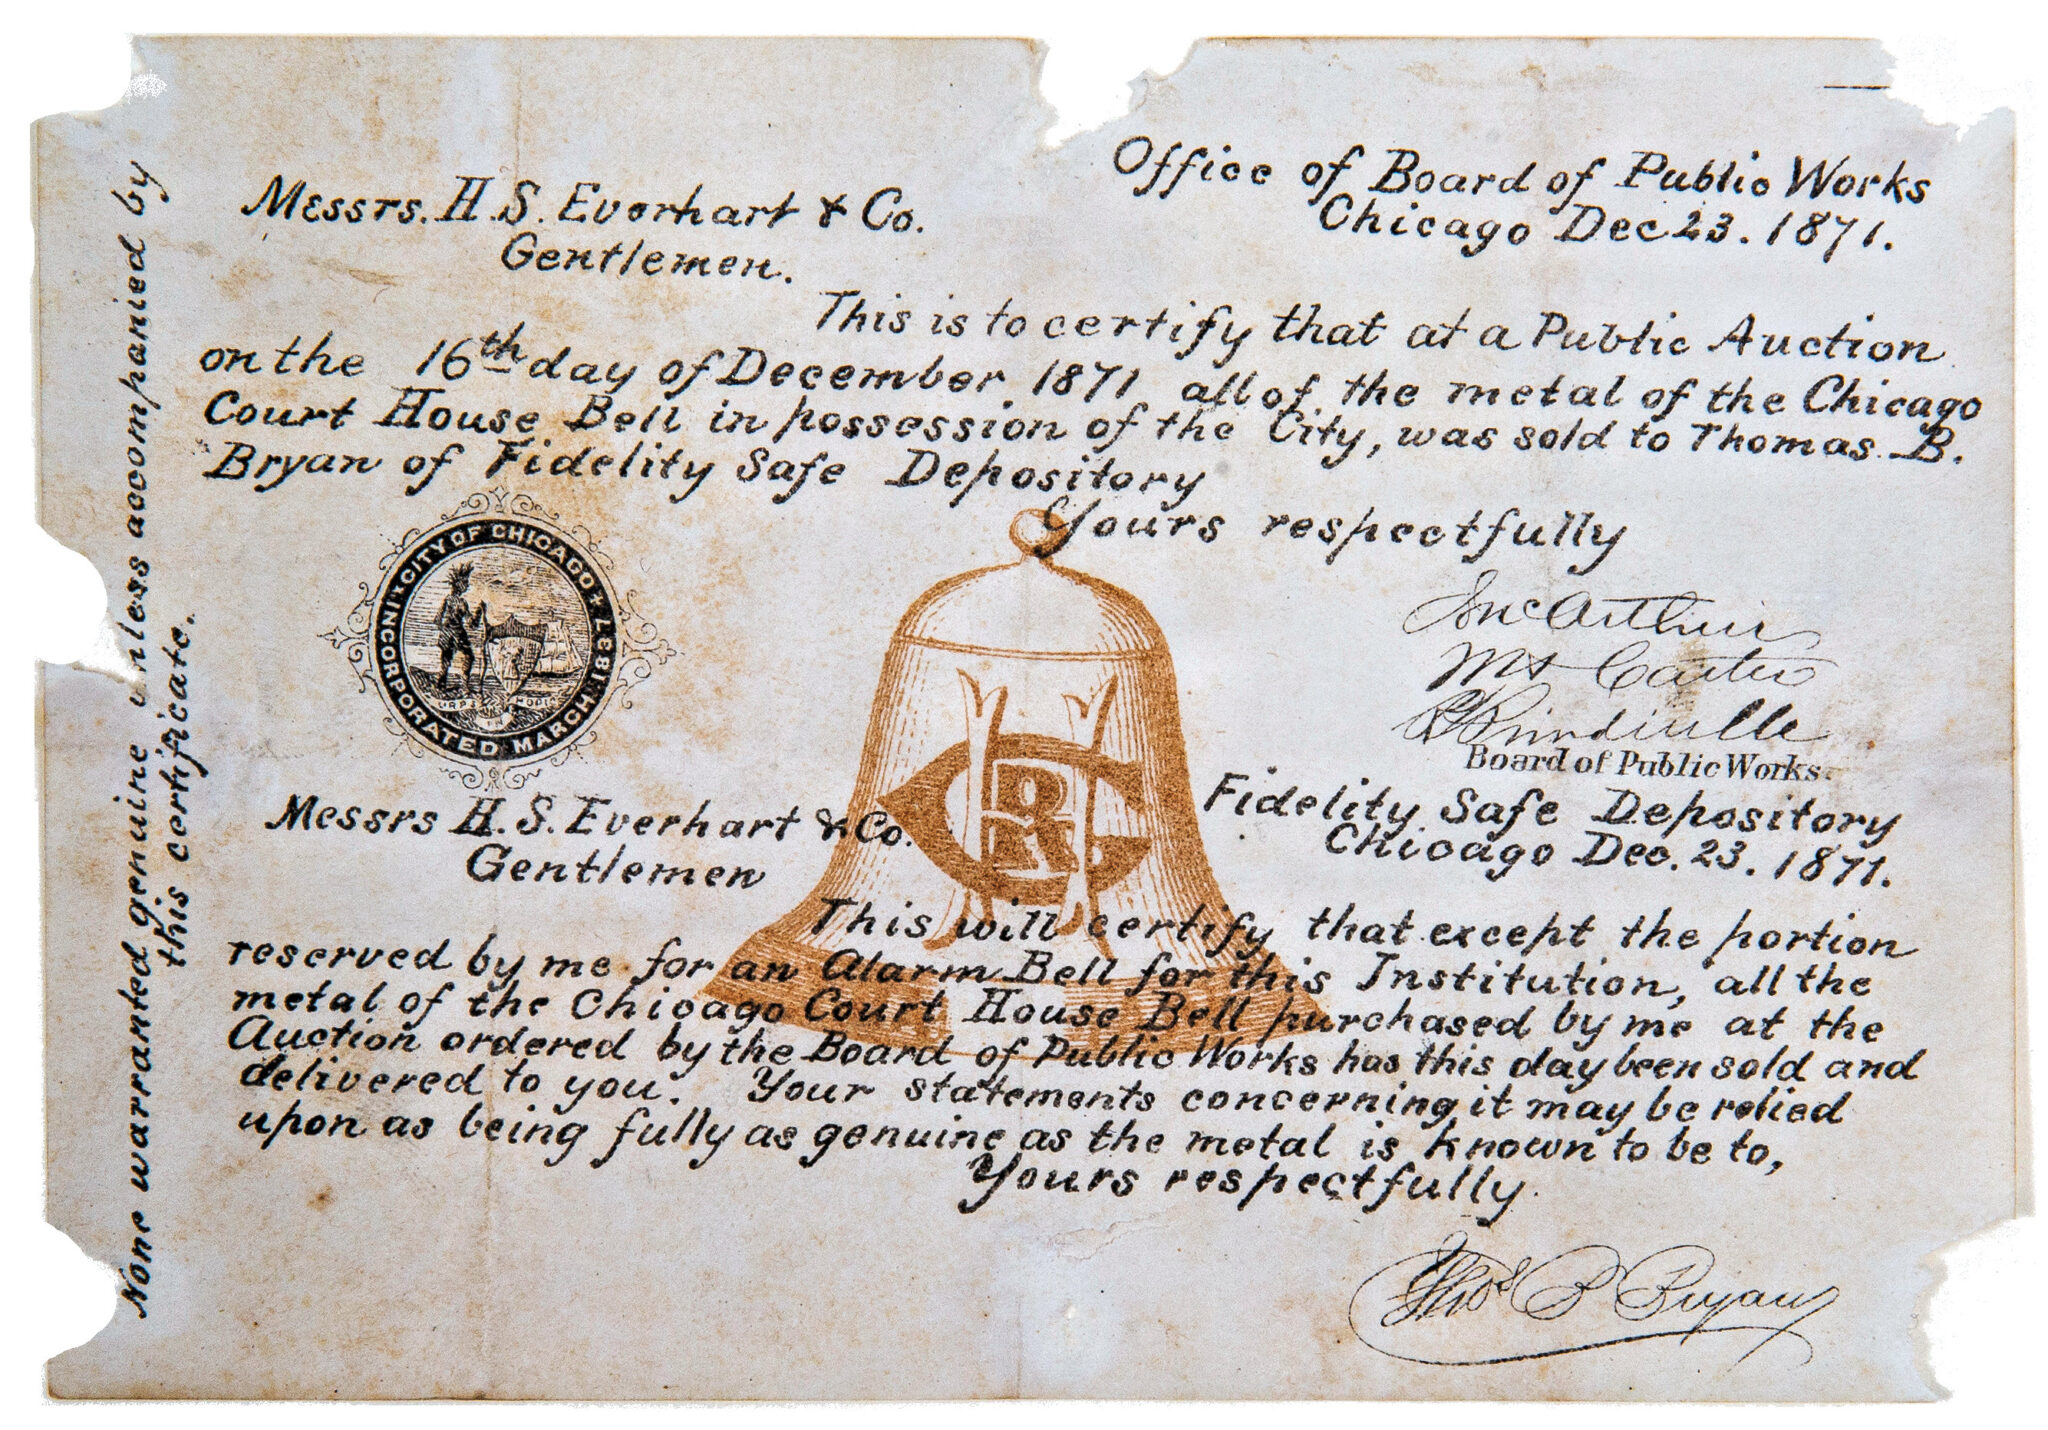 Office of Board of Public Works
Chicago Dec 23. 1871.
Messrs. H. S. Everhart & Co.
Gentlemen.
This is to certify that at a Public Auction
on the 16th day of December, 1871, all of the metal of the Chicago
Court House Bell in possession of the City, was sold to Thomas. B.
Bryan of Fidelity Safe Depository
Yours respectfully
McArthur
Carter
Prindiville
Board of Public Works.
CITY OF CHICAGO
INCORPORATED MARCH 1837
URBS IN HORTO
Fidelity Safe Depository
Chicago Dec. 23. 1871.
Messrs H. S. Everhart & Co.
Gentlemen
This will certify that except the portion
reserved by me for an Alarm Bell for this Institution, all the
metal of the Chicago Court House Bell purchased by me at the
Auction ordered by the Board of Public Works has this day been sold and
delivered to you. Your statements concerning it may be relied
upon as being fully as genuine as the metal is known to be to,
Yours respectfully.
Thos B Bryan
None warranted genuine unless accompanied by
this certificate.